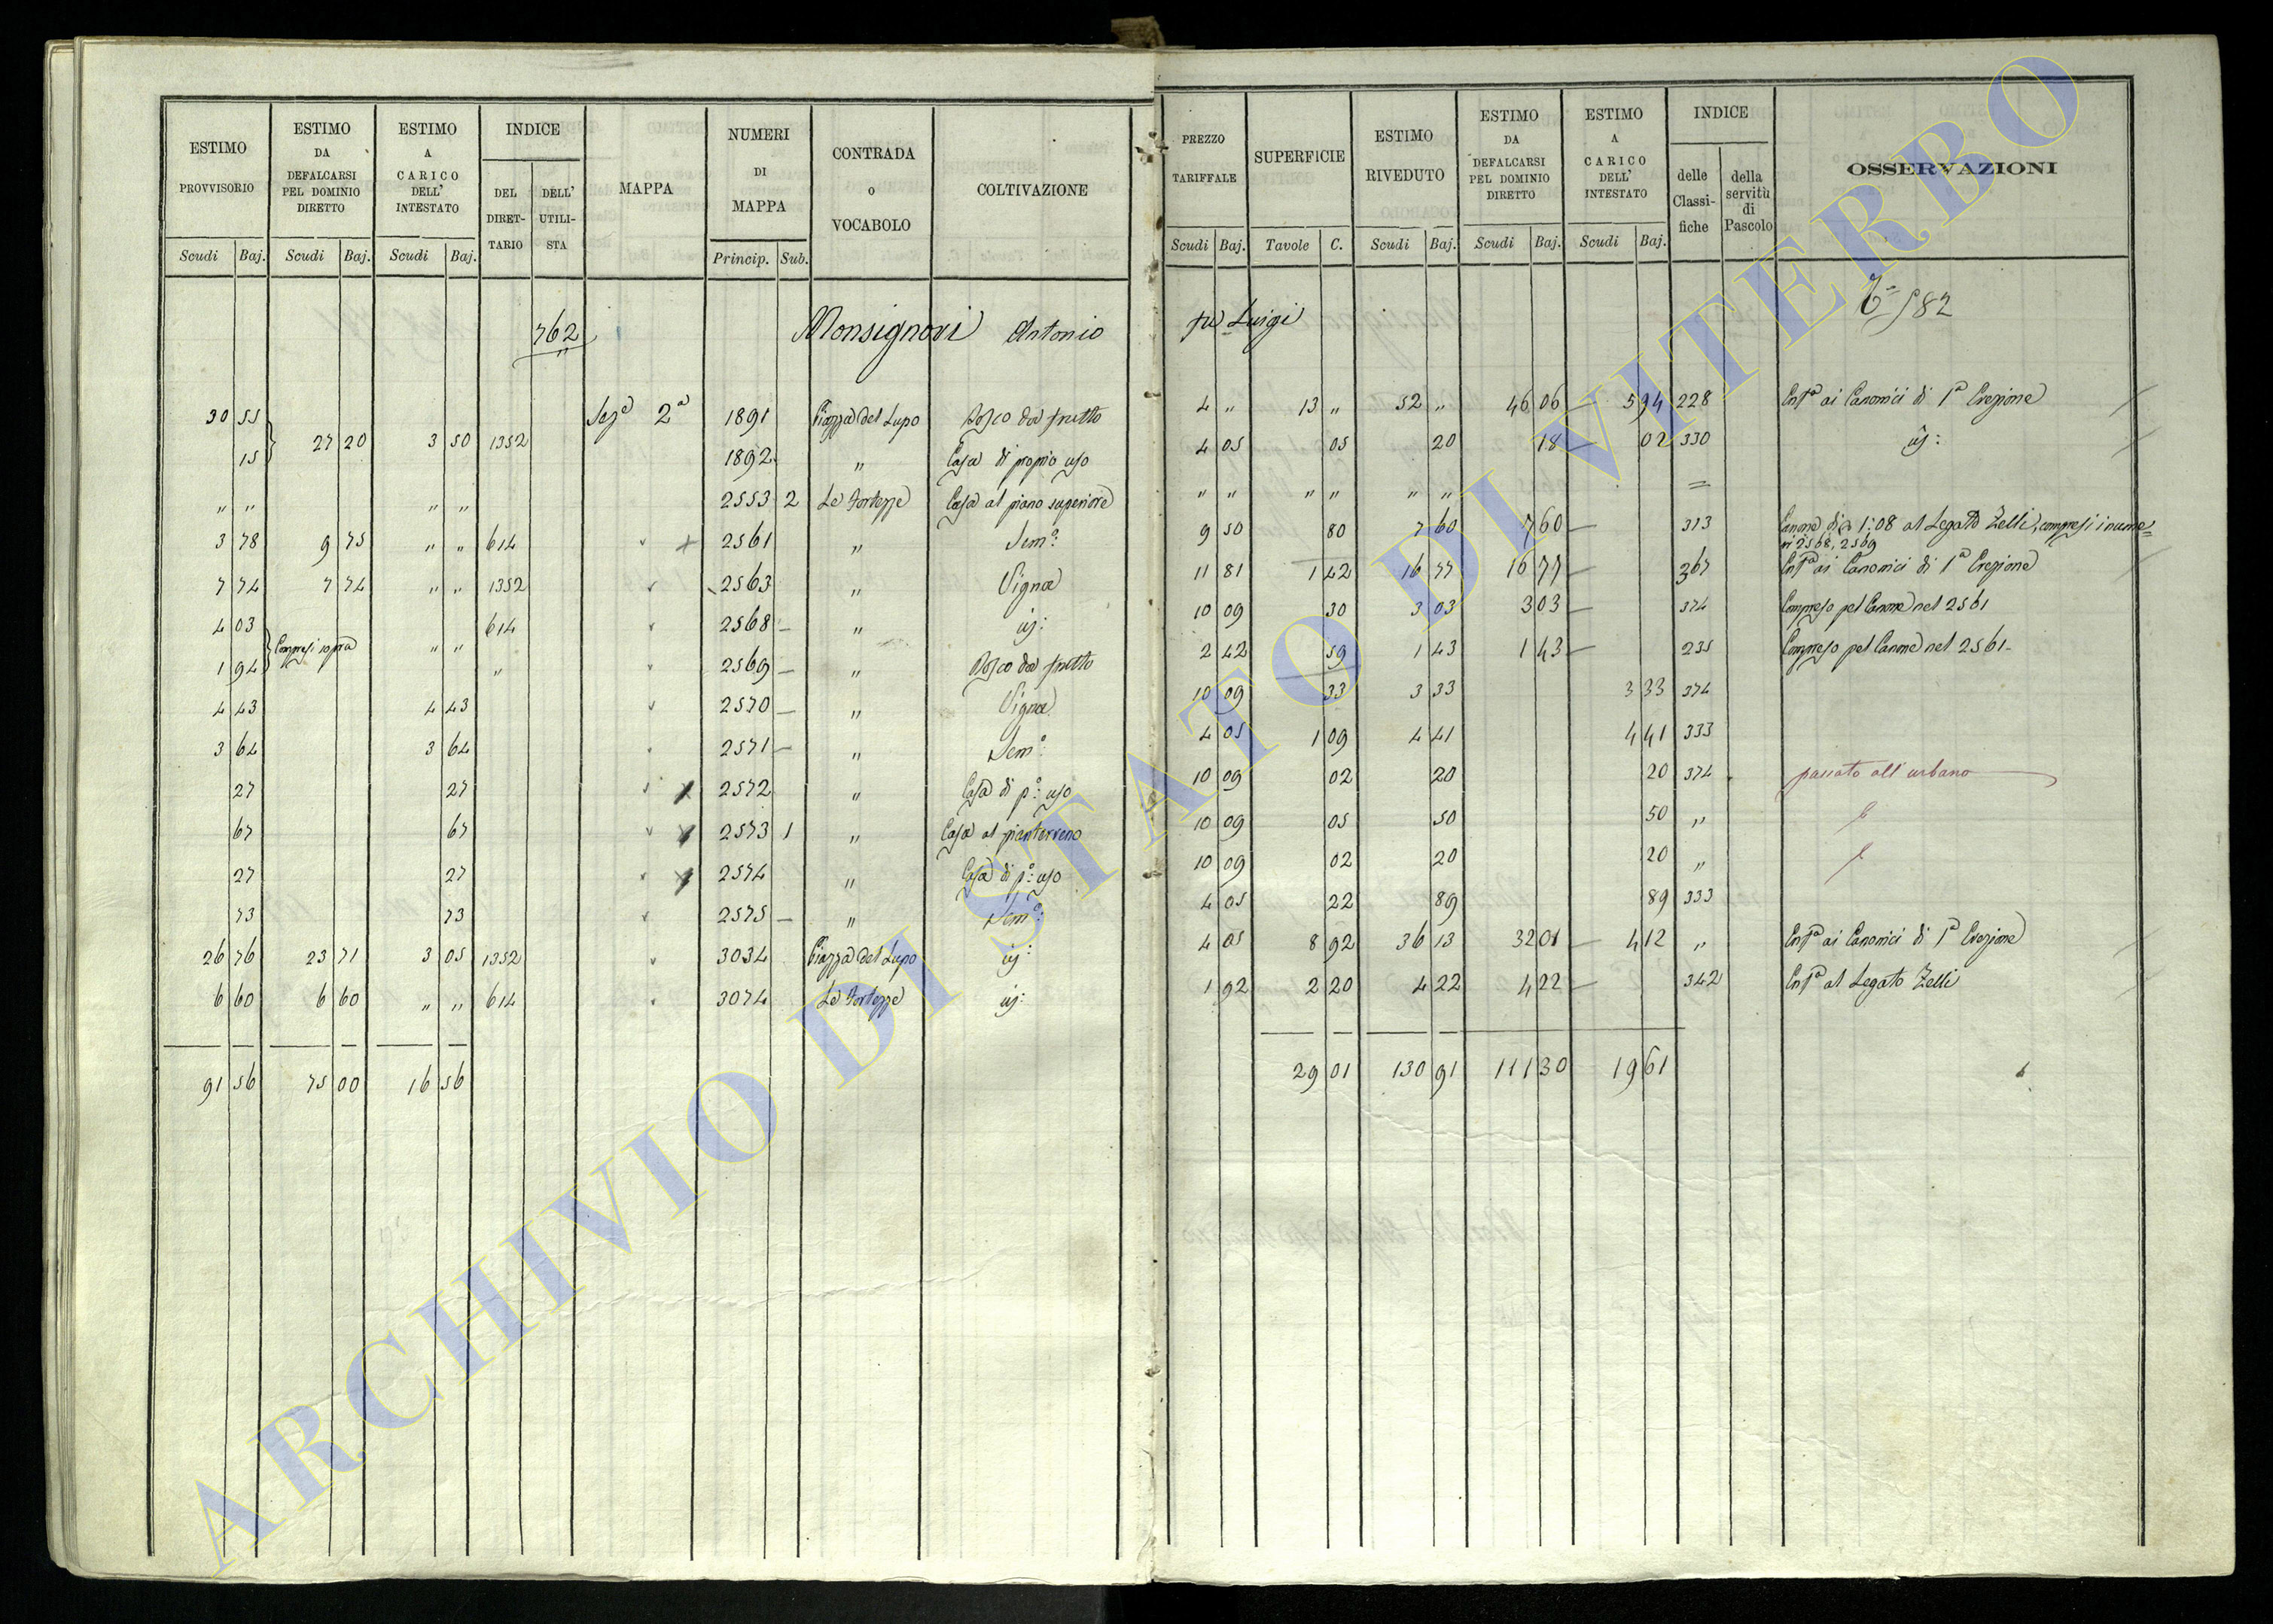 ESTIMO PROVVISORIO Scudi Baj.
ESTIMO DA DEFALCARSI PEL DOMINIO DIRETTO Scudi Baj.
ESTIMO A CARICO DELL' INTESTATO Scudi Baj.
INDICE DEL DIRETTARIO DELL' UTILISTA
MAPPA
NUMERI DI MAPPA Princip. Sub.
CONTRADA o VOCABOLO
COLTIVAZIONE
PREZZO TARIFFALE Scudi Baj.
SUPERFICIE Tavole C.
ESTIMO RIVEDUTO Scudi Baj.
ESTIMO DA DEFALCARSI PEL DOMINIO DIRETTO Scudi Baj.
ESTIMO A CARICO DELL' INTESTATO Scudi Baj.
INDICE delle Classifiche della servitù di Pascolo
OSSERVAZIONI
762 Monsignori Antonio fu Luigi 582
30 55 Seze 2a 1891 Piazza del Lupo Bosco da frutto 4 " 13 " 52 " 46 06 5 94 228 Entca ai Canonici di 1a Erezione
27 20 3 50 1352
15 1892 " Casa di proprio uso 4 05 05 20 18 02 330 id:
" " " " 2553 2 Le Fortezze Casa al piano superiore " " " " " " =
3 78 9 75 " " 614 2561 " Semo: 9 50 80 7 60 7 60 313 Canone di 1:08 al Legato Zelli, compresi i numeri 2568, 2569
7 74 7 74 " " 1352 2563 " Vigna 11 81 1 42 16 77 16 77 367 Entca ai Canonici di 1a Erezione
4 03 614 2568 " id: 10 09 30 3 03 3 03 374 Compreso pel Canone nel 2561
Compresi sopra " "
1 94 " 2569 " Bosco da frutto 2 42 59 1 43 1 43 235 Compreso pel Canone nel 2561
4 43 4 43 2570 " Vigna 10 09 33 3 33 3 33 374
3 64 3 64 2571 " Semo: 4 05 1 09 4 41 4 41 333
27 27 2572 " Casa di po: uso 10 09 02 20 20 374 passato all'urbano
67 67 2573 1 " Casa al pianterreno 10 09 05 50 50 "
27 27 2574 " Casa di po: uso 10 09 02 20 20 "
73 73 2575 " Semo: 4 05 22 89 89 333
26 76 23 71 3 05 1352 3034 Piazza del Lupo id: 4 05 8 92 36 13 32 01 4 12 " Entca ai Canonici di 1a Erezione
6 60 6 60 " " 614 3074 Le Fortezze id: 1 92 2 20 4 22 4 22 342 Entca al Legato Zelli
91 56 75 00 16 56 29 01 130 91 111 30 19 61
ARCHIVIO DI STATO DI VITERBO